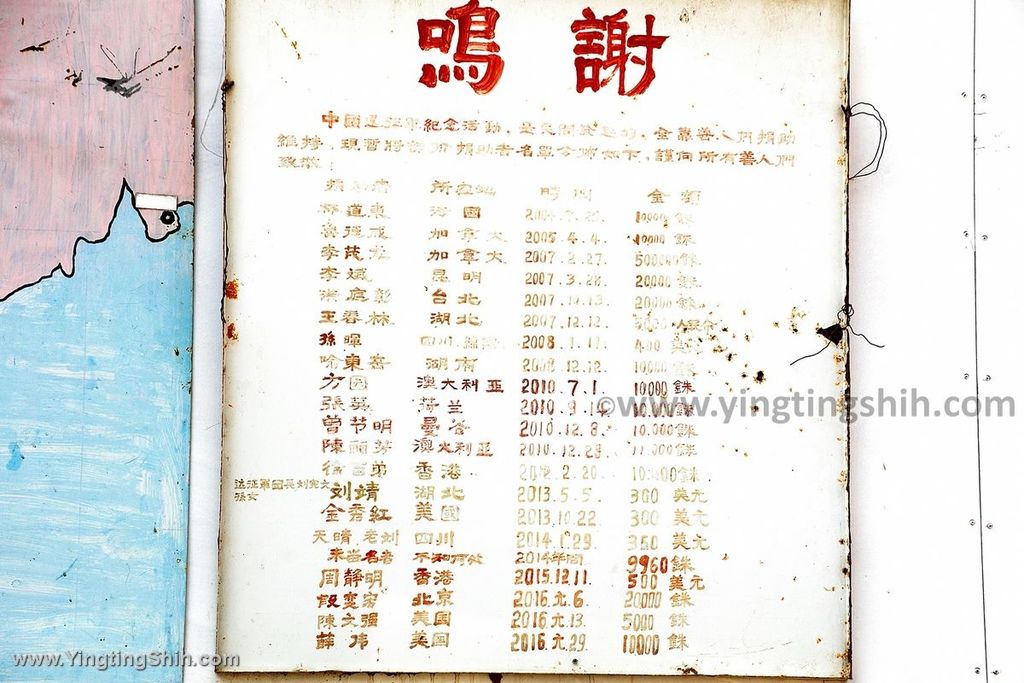 鳴 謝
中國遠征軍紀念活動,是民間於起的,全靠善人們捐助
維持,現暫將部份捐助者名單公佈如下,謹向所有善人們
致敬:
捐助者 所在地 時間 金額
道東 泰國 10000銖
加拿大 2005.4.4. 10000銖
李茂 加拿大 2007.2.27. 500000銖
李斌 昆明 2007.3.28. 20000銖
台北 2007. 20000銖
王春林 湖北 2007.12.12.
孫暉 四川 2008.1.11. 400美元
喻東 湖南 2008.12.12. 10000銖
方園 澳大利亞 2010.7.1. 10000銖
張英 荷兰 2010.9.14 10.000銖
曾节明 曼谷 2010.12.8. 10.000銖
陳丽芬 澳大利亞 2010.12.29. 11.000銖
徐 弟 香港 2012.2.20. 10.000銖
远征軍團長刘宪文
孫女
刘靖 湖北 2013.5.5. 300美元
金秀紅 美國 2013.10.22. 300美元
天晴.老刘 四川 2014.1.29. 350美元
未留名者 不知何处 2014年間 9960銖
周靜明 香港 2015.12.11. 500美元
段雯宏 北京 2016.元.6. 20000銖
陳文强 美国 2016.元.13. 5000銖
薛伟 美国 2016.元.29. 10000銖
©www.yingtingshih.com
www.YingtingShih.com